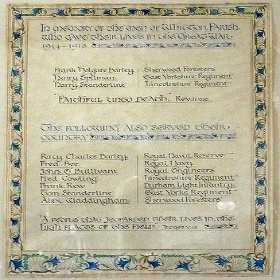 In memory of the men of Whitton Parish
who gave their lives in the Great War.
1914 – 1918
Frank Holgate Barley, Sherwood Foresters
Henry Spilman East Yorkshire Regiment
Harry Standerline Lincolnshire Regiment
Faithful unto death.
The following also served their
country
Percy Charles Barley Royal Naval Reserve
Fred Bee Royal Navy
John E Bullivant Royal Engineers
Fred Cowling Lincolnshire Regiment
Frank Rew Durham Light Infantry
Tom Standerline East Yorks Regiment
Alex Waddingham Sherwood Foresters
A people that jeoparded their lives in the
high places of the field.